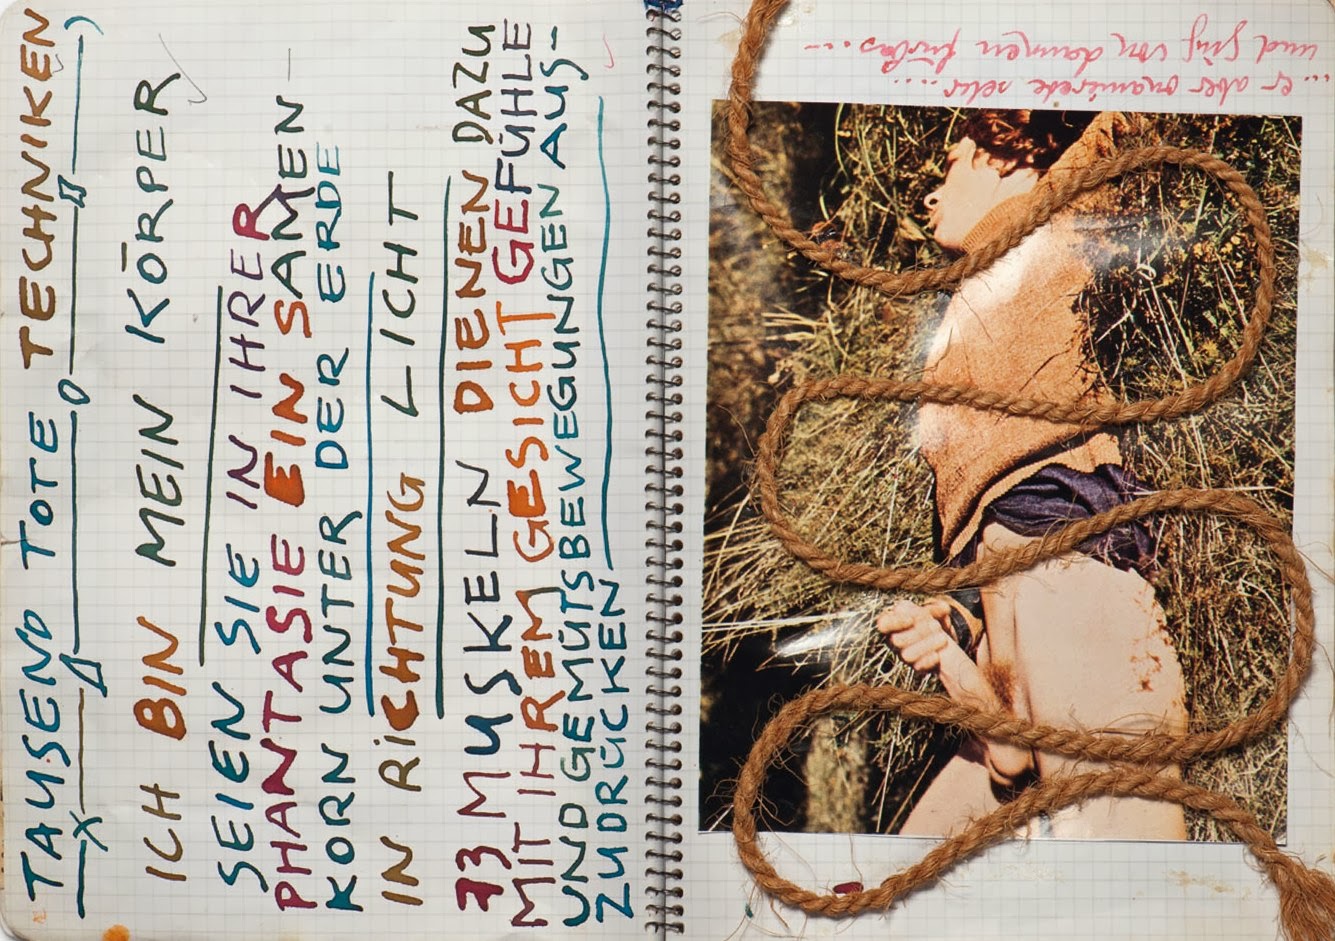 TAUSEND TOTE TECHNIKEN
ICH BIN MEIN KÖRPER
SEIEN SIE IN IHRER
PHANTASIE EIN SAMEN
KORN UNTER DER ERDE
IN RiCHTUNG LICHT
73 MUSKELN DIENEN DAZU
MIT IHREM GESICHT GEFÜHLE
UND GEMÜTSBEWEGUNGEN AUS-
ZUDRÜCKEN
... er aber onanierte sehr....
und ging von dannen fürbas...